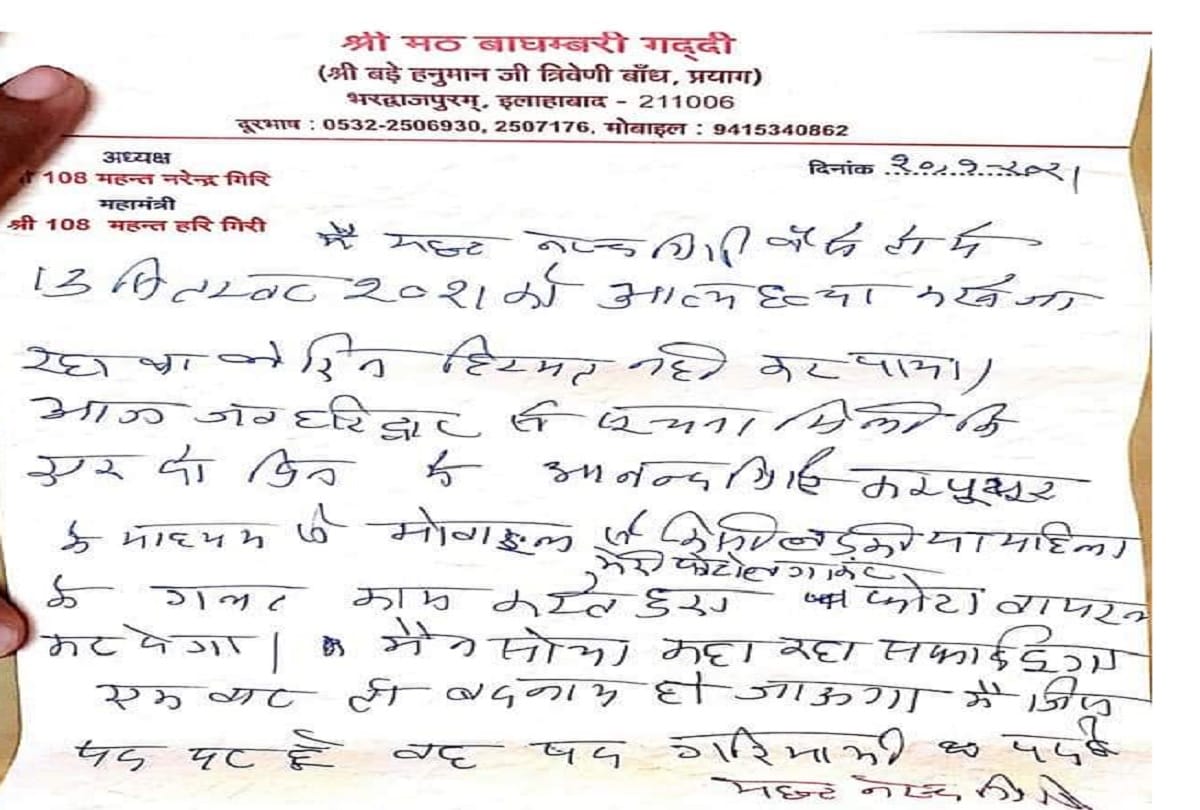 श्री मठ बाघम्बरी गद्दी
(श्री बड़े हनुमान जी त्रिवेणी बाँध, प्रयाग)
भरद्वाजपुरम्, इलाहाबाद - 211006
दूरभाष : 0532-2506930, 2507176, मोबाइल : 9415340862
अध्यक्ष
108 महन्त नरेन्द्र गिरि
महामंत्री
श्री 108 महन्त हरि गिरी
दिनांक
मै महन्त नरेन्द्र गिरि वैसे तो मै
13 सितम्बर २०२१ को आत्म हत्या करने जा
रहा था लेकिन हिम्मत नही कर पाया।
आज जब हरिद्वार से सूचना मिली कि
एक दो दिन में आनन्द गिरि कम्प्यूटर
के माध्यम से मोबाइल से किसी लडकी या महिला
मेरी फोटो लगाकर
के गलत काम करते हुए फोटो वायरल
कर देगा। मैने सोचा कहा तक सफाई दूंगा
एक बार तो बदनाम हो जाऊगा मै जिस
पद पर हूँ वह पद गरिमामयी पद है
महन्त नरेन्द्र गिरि